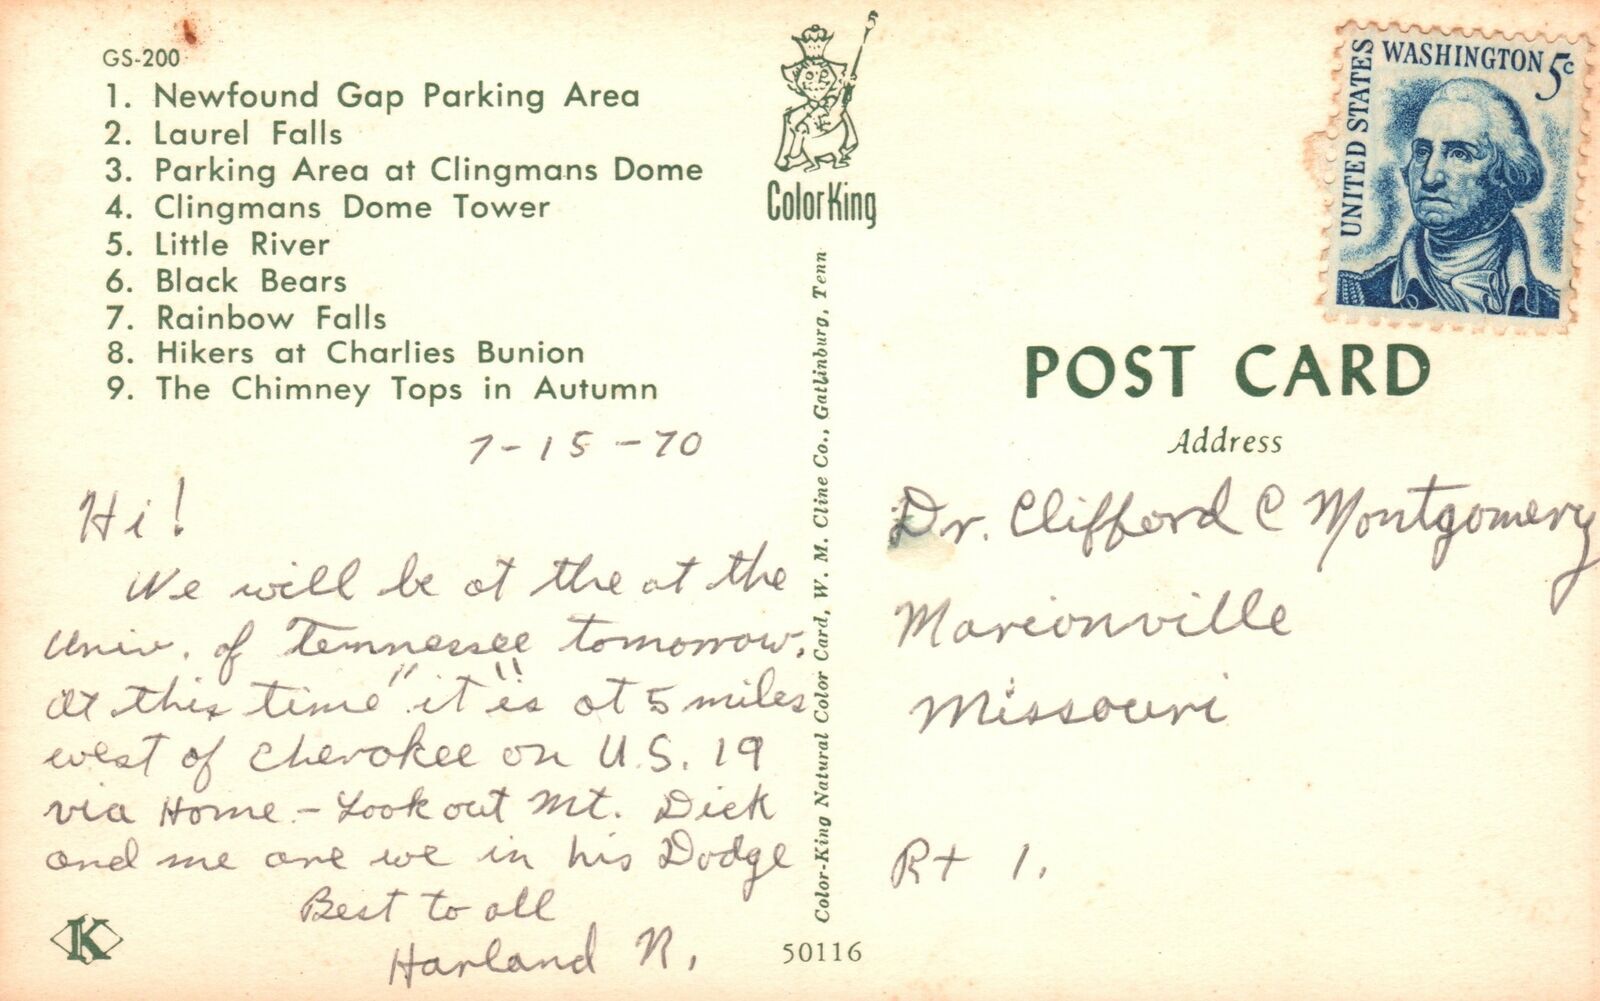 GS-200
1. Newfound Gap Parking Area
2. Laurel Falls
3. Parking Area at Clingmans Dome
4. Clingmans Dome Tower
5. Little River
6. Black Bears
7. Rainbow Falls
8. Hikers at Charlies Bunion
9. The Chimney Tops in Autumn
7-15-70
Hi!
We will be at the at the
Univ. of Tennessee tomorrow.
At this time "it" is at 5 miles
west of Cherokee on U.S. 19
via Home - Lookout Mt. Dick
and me are we in his Dodge
Best to all
Harland R.
K
ColorKing
Color-King Natural Color Card, W. M. Cline Co., Gatlinburg, Tenn
50116
UNITED STATES
WASHINGTON 5c
POST CARD
Address
Dr. Clifford C Montgomery
Marionville
Missouri
Rt 1.